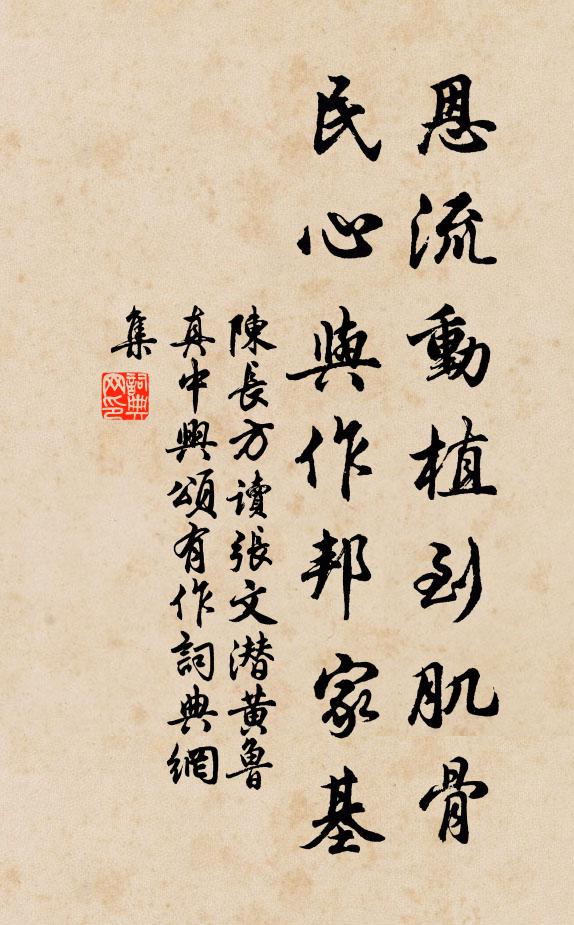 恩流動植到肌骨
民心與作邦家基
陳長方讀張文潜黃魯
真中興頌有作詞典網
集
詞典
网印